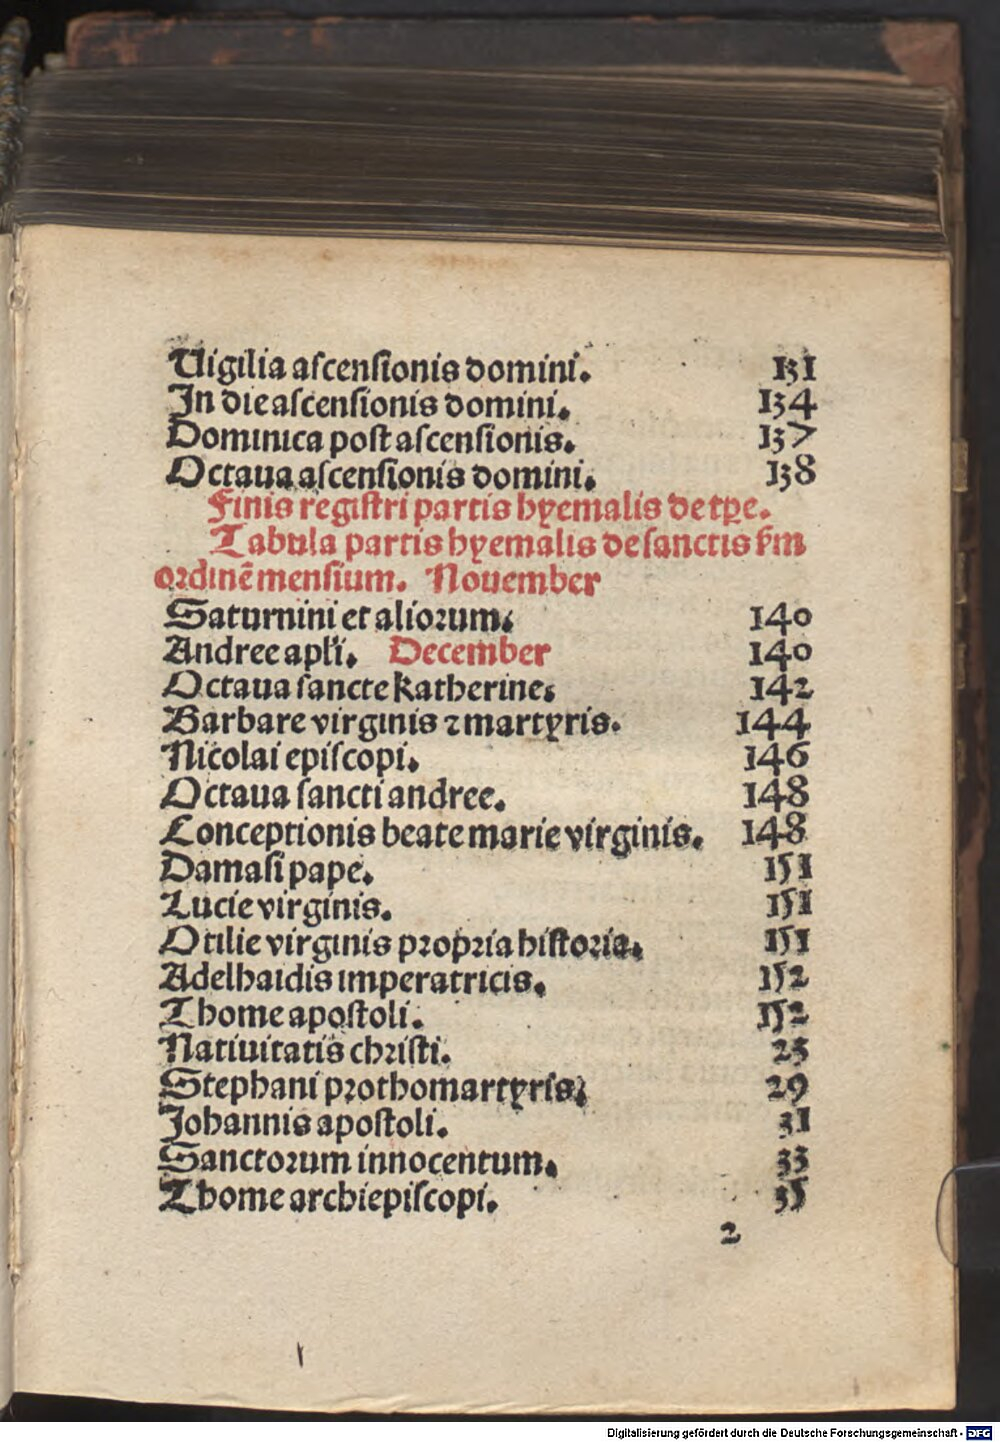 Uigilia ascensionis domini. 131
In die ascensionis domini. 134
Dominica post ascensionis. 137
Octaua ascensionis domini. 138
Finis registri partis hyemalis de tp̄e.
Tabula partis hyemalis de sanctis ẜm
ordinē mensium. Nouember
Saturnini et aliorum. 140
Andree apl'i. December 140
Octaua sancte katherine. 142
Barbare virginis ⁊ martyris. 144
Nicolai episcopi. 146
Octaua sancti andree. 148
Conceptionis beate marie virginis. 148
Damasi pape. 151
Lucie virginis. 151
Otilie virginis propria historia. 151
Adelhaidis imperatricis. 152
Thome apostoli. 152
Natiuitatis christi. 25
Stephani prothomartyris. 29
Johannis apostoli. 31
Sanctorum innocentum. 33
Thome archiepiscopi. 35
2
Digitalisierung gefördert durch die Deutsche Forschungsgemeinschaft - DFG